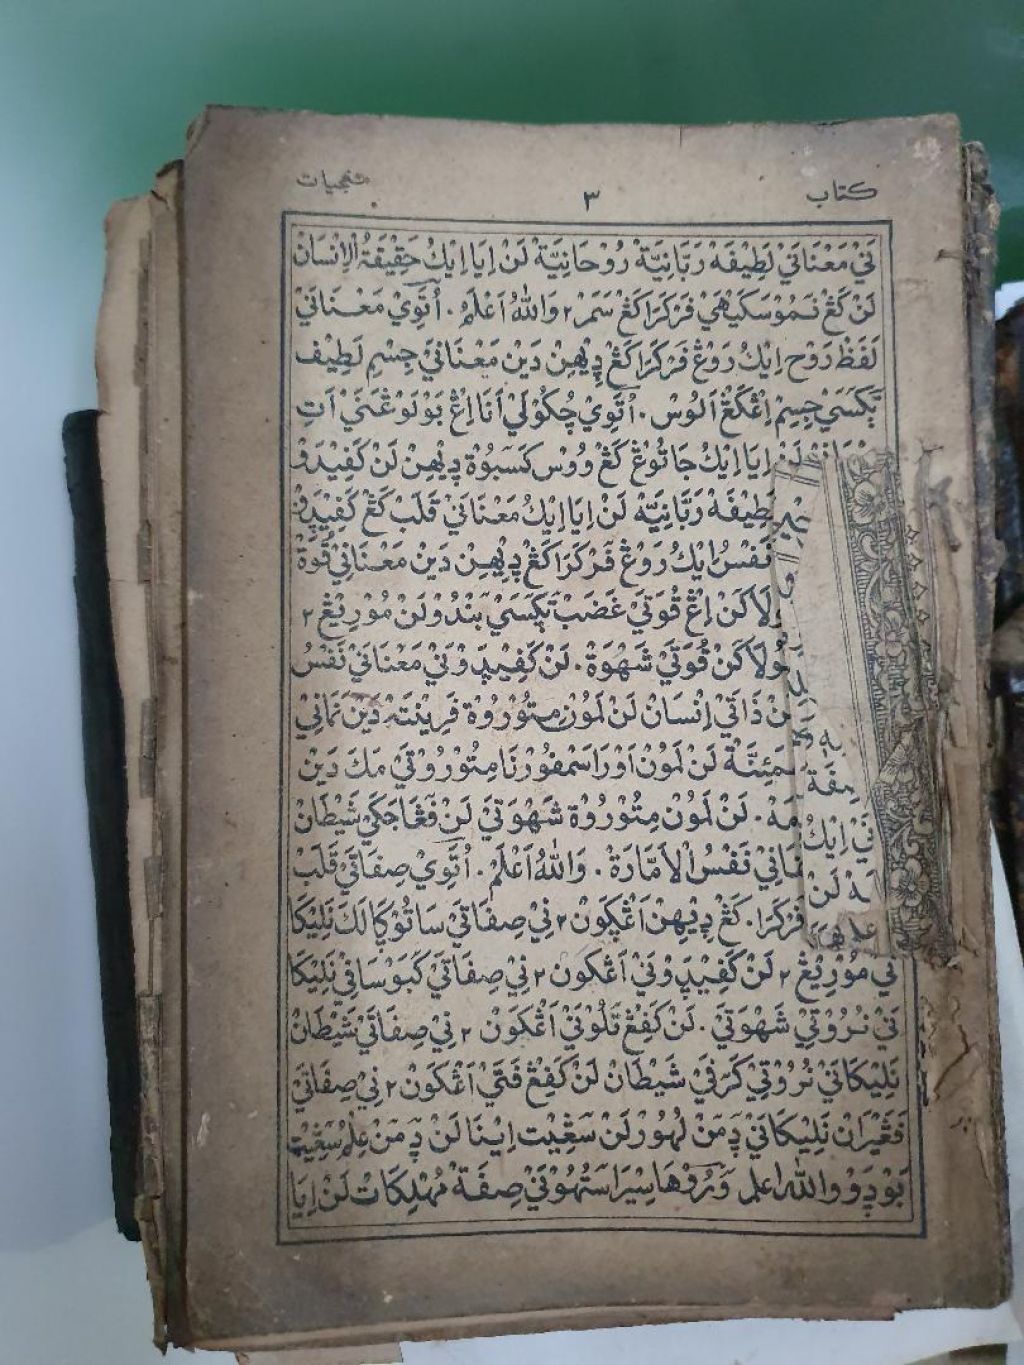 كتاب
٣
منجيات
تَيْ مَعْنَاتَيْ لَطِيْفَه رَبَّانِيَّة رُوْحَانِيَّة لَنْ اِيَا اِيْكُ حَقِيْقَةُ الْاِنْسَانْ
لَنْ كَڠْ نَمُوْسَكَيْهَيْ فَرْكَرَا كَڠْ سَمَرْ ٢ وَاللهُ اَعْلَمُ . اُتَوِيْ مَعْنَاتَيْ
لَفَظْ رَوْح اِيْكُ رَوْڠْ فَرْكَرَا كَڠْ دِيْهِنْ دَيْنَ مَعْنَاتَيْ جِسْمِ لَطِيْف
اِڠْكَڠْ اَلُوْس . اُتَوِيْ چُكُوْلَيْ اَنَا اِڠْ بَوْلَوْڠَنَيْ اَتِ
لَنْ اِيَا اِيْكُ جَاتُوْڠْ كَڠْ وُوْس كَسَبُوْة دِيْهِنْ لَنْ كَفِيْدَوْ
لَطِيْفَه رَبَّانِيَّه لَنْ اِيَا اِيْكُ مَعْنَاتَيْ قَلَبْ كَڠْ كَفِيْدَوْ
نَفْسُ اِيْكُ رَوْڠْ فَرْكَرَا كَڠْ دِيْهِنْ دَيْنَ مَعْنَاتَيْ قُوَّة
وَلَاكَنْ اِڠْ قُوَّتَيْ غَضَبْ بَنْدُوْ لَنْ مُوْرِيْڠْ ٢
قُوَّتَيْ شَهْوَة . لَنْ كَفِيْدَوْ نَيْ مَعْنَاتَيْ نَفْسُ
ذَاتَيْ اِنْسَانْ لَنْ لَمُوْنْ مِتُوْرُوْة فَرِيْنْتَه دَيْنَ نَمَانِيْ
لَنْ لَمُوْنْ اَوْرَا سَمْفُوْرْنَا مِتُوْرُوْتَيْ مَكَ دَيْنَ
لَنْ لَمُوْنْ مِتُوْرُوْة شَهْوَتَيْ لَنْ فَڠَاجَكَيْ شَيْطَانْ
نَفْسُ الْاَمَّارَة . وَاللهُ اَعْلَمْ . اُتَوِيْ صِفَاتَيْ قَلَبْ
فَرْكَرَا . كَڠْ دِيْهِنْ اَڠْكَوْنْ ٢ نِيْ صِفَاتَيْ سَاتَوْ كَالَكَ نَلِيْكَا
نَيْ مُوْرِيْڠْ ٢ لَنْ كَفِيْدَوْ نَيْ اَڠْكَوْنْ ٢ نِيْ صِفَاتَيْ نَلِيْكَا
نَيْ نُرُوْتِيْ شَهْوَتَيْ . لَنْ كَفِيْڠْ تَلُوْنَيْ اَڠْكَوْنْ ٢ نِيْ صِفَاتَيْ شَيْطَانْ
نَلِيْكَانَيْ نُرُوْتِيْ كَرَفَيْ شَيْطَانْ لَنْ كَفِيْڠْ فَتَيْ اَڠْكَوْنْ ٢ نِيْ صِفَاتَيْ
فَڠَيْرَانْ نَلِيْكَانَيْ دَمَنْ لُهُوْر لَنْ لَنْ دَمَنْ عِلِمُ
وَاللهُ اعلم وَرُوْهَا سِيْرَا سَتُهُوْنَيْ صِفَة مُهْلِكَاتْ لَنْ اِيَا